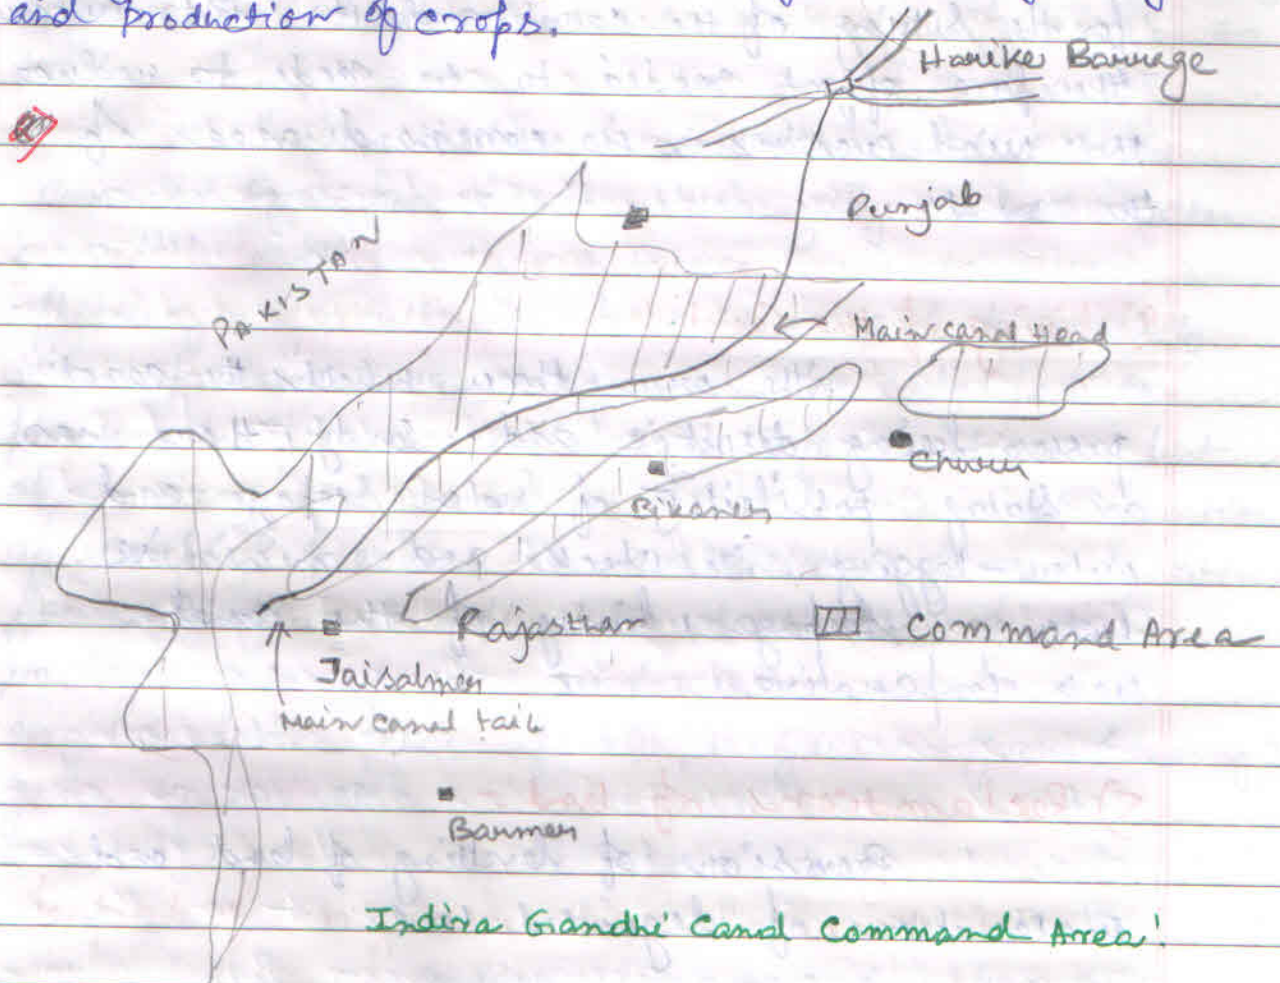 and Production of crops.
Harike Barrage
Punjab
PAKISTAN
Main canal Head
Churu
Bikaner
Rajasthan
Command Area
Jaisalmer
Main canal tail
Barmer
Indira Gandhi Canal Command Area!